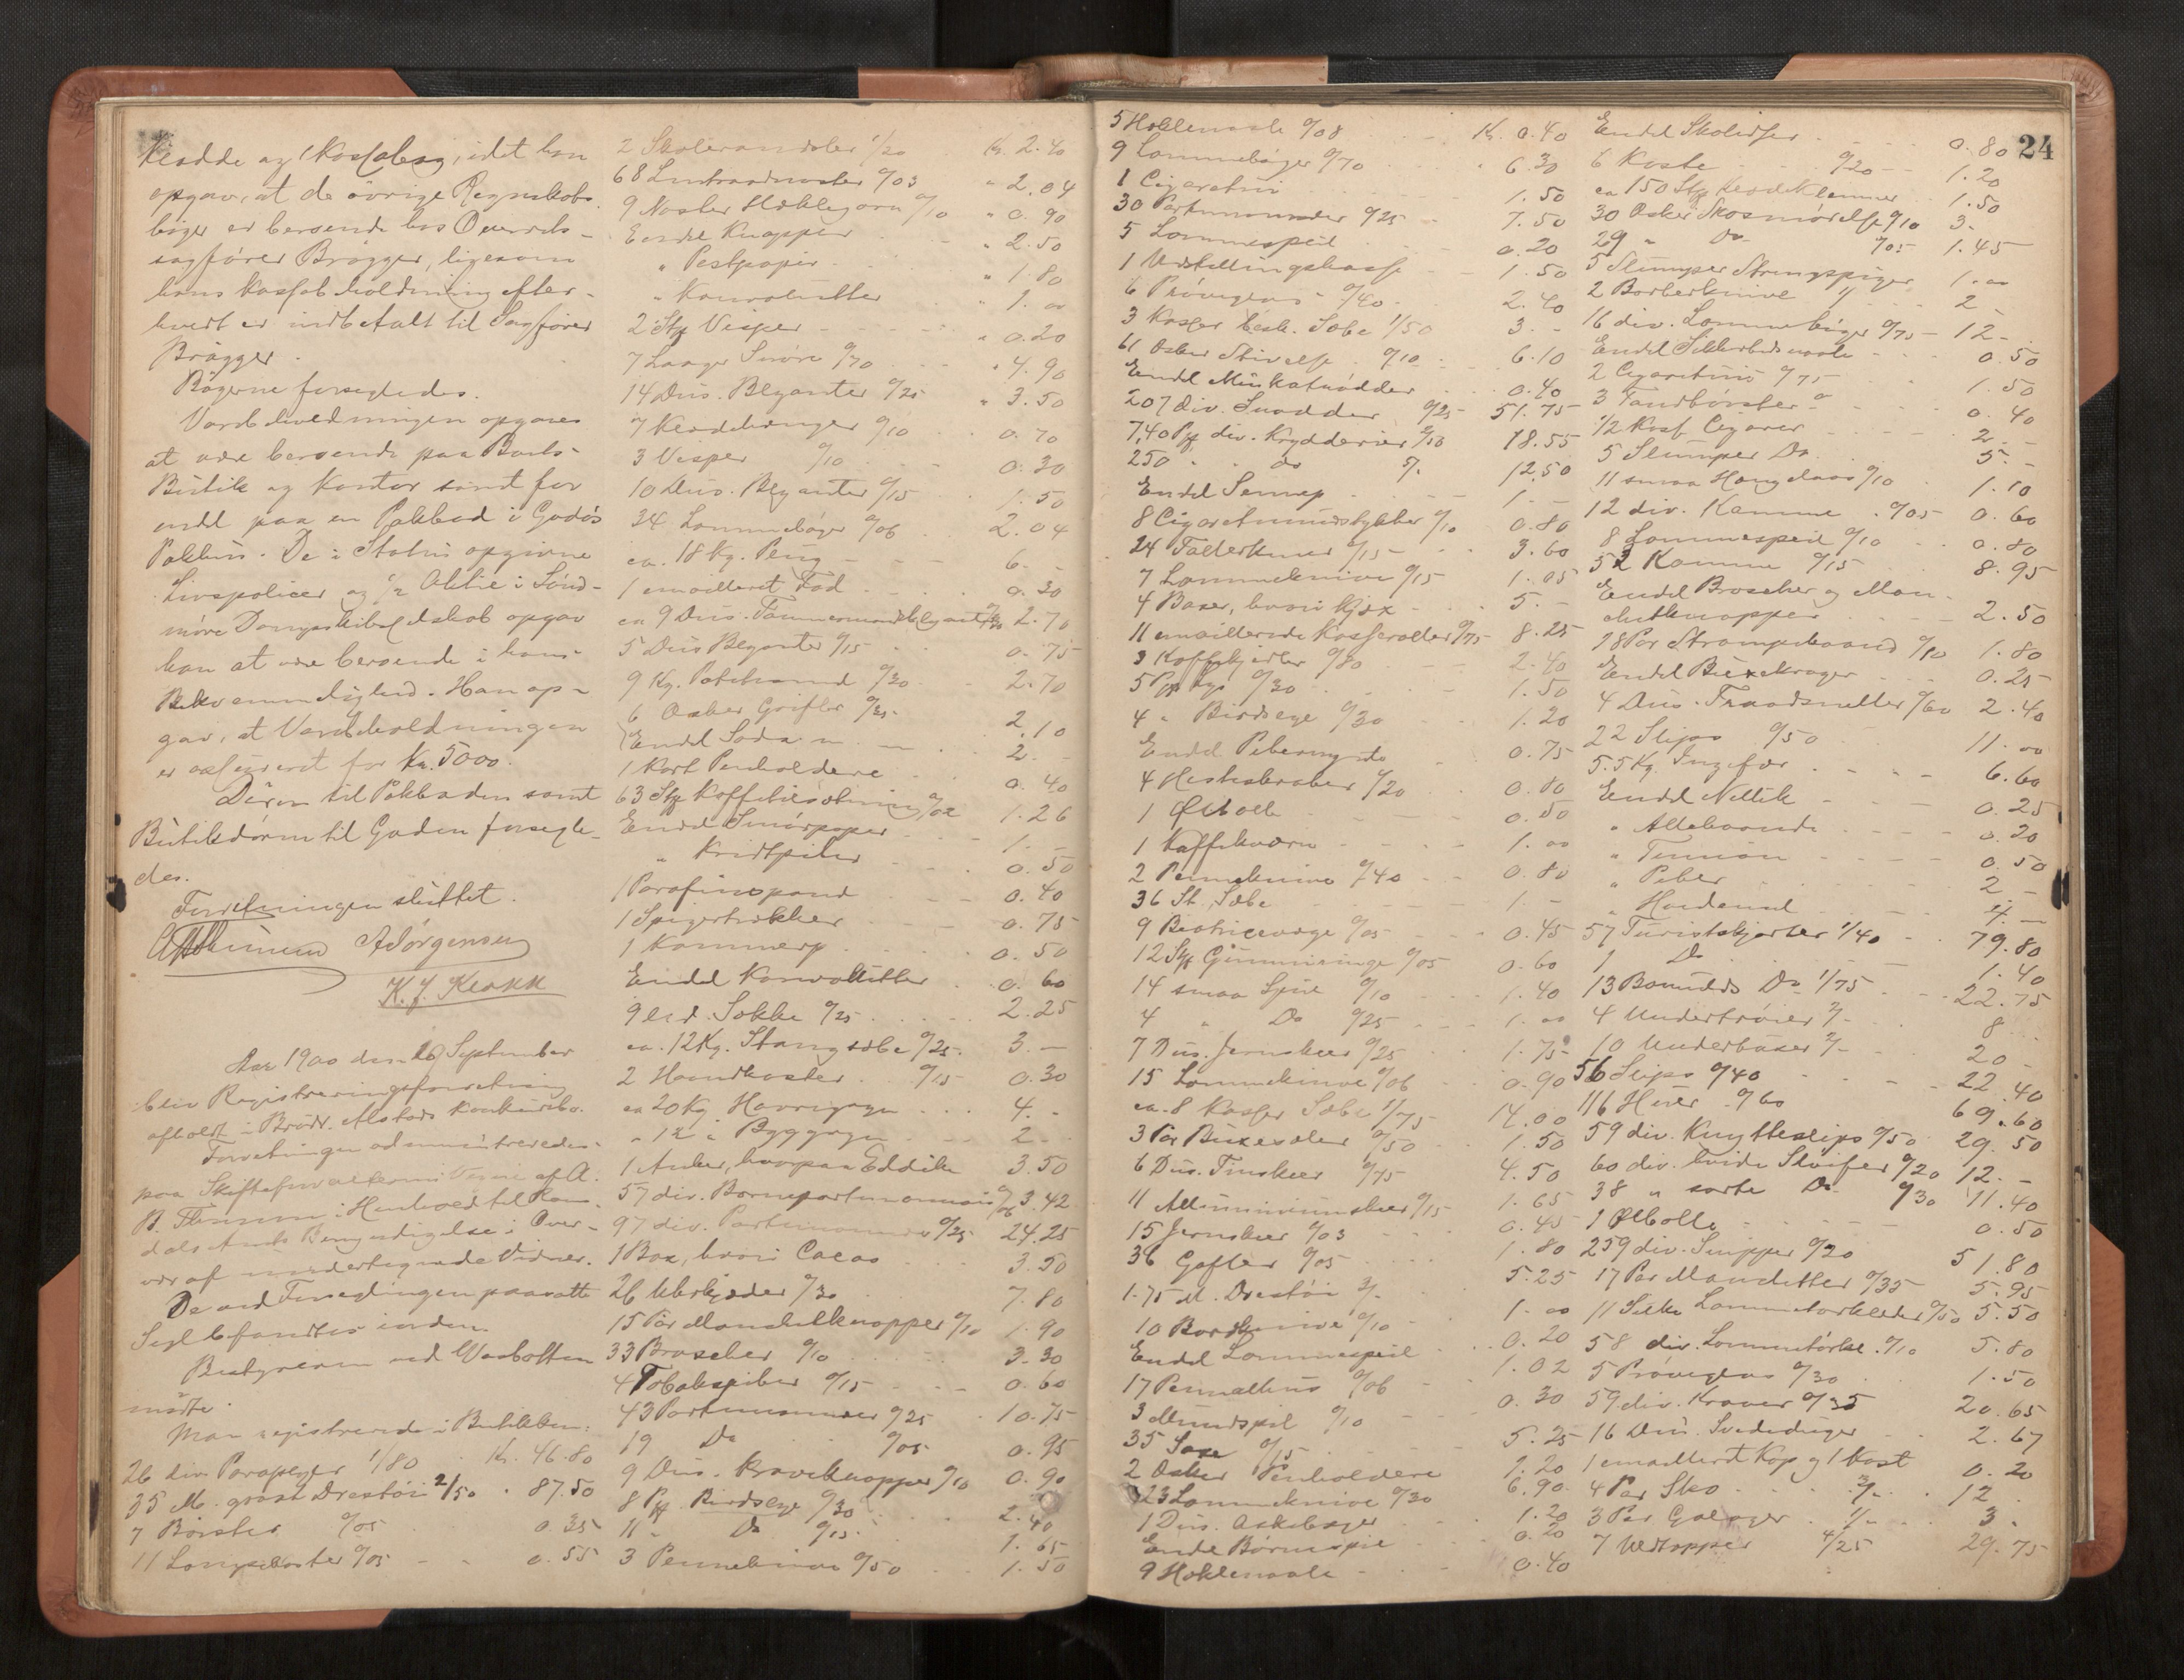 Kladde og 1 Kassabog, idet han
opgav, at de övrige Regnskabs-
böger er beroende hos Overrets-
sagförer Brögger, ligesom
hans Kassabeholdning efter-
hvert er indbetalt til Sagförer
Brögger.
Bögerne forsegledes.
Varebeholdningen opgaves
at være beroende paa Boets
Butik og Kontor samt for
endel paa en Pakbod i Godös
Pakhus. De i Status opgivne
Livspolicer og Aktie i Sönd-
möre Dampskibsselskab opgav
han at være beroende i hans
Bekvemmelighed. Han op-
gav, at Varebeholdningen
er assureret for Kr. 5000.
Dören til Pakboden samt
Butiksdören til Gaden forsegle-
des.
Forretningen sluttet.
A Jörgensen
K. J. Krakk
Aar 1900 den September
blev Registreringsforretning
afholdt i Brödr. Alstads Konkursbo.
Forretningen administreredes
paa Skifteforvalterens Vegne af A.
B. Thesen i Henhold til Kon-
stitution Bemyndigelse i Over-
vær af undertegnede Vidner.
De ved Forseglingen paasatte
Segl befandtes urörte.
Bestyreren ved
mödte.
Man registrerede i Butikken:
26 div. Paraplyer 1/80 Kr. 46.80
35 M. graat Drestöi 2/50 " 87.50
7 Börster 0/05 0.35
11 Lampekoster 0/05 0.55
2 Skolerandsler 1/20 Kr. 2.40
68 0/03 " 2.04
9 Nöster Heklegarn 0/10 " 0.90
Endel Knapper " 2.50
" Postpapir " 1.80
" Konvolutter " 1.00
2 Stk Visper " 0.20
7 Laager Snöre 0/70 " 4.90
14 Dus. Blyanter 0/25 " 3.50
7 Klædehænger 0/10 0.70
3 Visper 0/10 0.30
10 Dus. Blyanter 0/15 1.50
34 Lommeböger 0/06 2.04
ca. 18 Kg. 6.-
1 emailleret Fad 0.30
ca 9 Dus. Tömmermandsblyanter 0/30 2.70
5 Dus Blyanter 0/15 0.75
9 Kg. 0/30 2.70
6 Æsker Grifler 0/35 2.10
Endel Soda 2.-
1 Kort Penholdere 0.40
63 Stk Kaffetilsætning 0/02 1.26
Endel Smörpapir 1.-
" Kridtpiber 0.50
1 Parafinspand 0.40
1 Spigertrækker 0.75
1 0.50
Endel Konvolutter 0.60
9 Sokke 0/25 2.25
ca. 12 Kg. Stangsæbe 0/25 3.-
2 Haandkoster 0/15 0.30
ca 20 Kg Havregryn 4.-
" 12 " Byggryn 2-
1 Anker, hvorpaa Eddike 3.50
57 div. Barneportemonnais 0/06 3.42
97 div. Portemonnais 0/25 24.25
1 Box, hvori Cacao 3.50
26 Uhrkjæder 0/30 7.80
15 Par Manchetknapper 0/10 1.90
33 Broscher 0/10 3.30
4 Tobakspiber 0/15 0.60
43 Portemonnaer 0/25 10.75
19 Do 0/05 0.95
9 Dus. Kraveknapper 0/10 0.90
8 Pk Birdseye 0/30 2.40
11 " Do 0/15 1.65
3 Penneknive 0/50 1.50
24
5 Heklenaale 0/08 Kr. 0.40
9 Lommeböger 0/70 6.30
1 Cigaretui 1.50
30 Portemonnaer 0/25 7.50
5 Lommespeil 0.20
1 Udstillingskasse 1.50
6 Pröveglas 0/40 2.40
3 Kasser besk. Sæbe 1/50 3.-
61 Æsker Stivelse 0/10 6.10
Endel Muskatnödder 0.40
207 div. Snadder 0/25 51.75
7,40 Pk div. Krydderier 18.55
250 " " do 5/- 12.50
Endel Sennep 1.-
8 Cigaretmundstykker 0/10 0.80
24 Tallerkner 0/15 3.60
7 Lommeknive 0/15 1.05
4 Boxer, hvori Kjæx 5.-
11 emaillerede Kasseroller 0/75 8.25
3 Kaffekjedler 0/80 2.40
5 Pk Lys 0/30 1.50
4 " Birdseye 0/30 1.20
Endel Pebermynte 0.75
4 Hesteskraber 0/20 0.80
1 Ølbolle 0.50
1 Kaffekværn 1.00
2 Penneknive 0/40 0.80
36 St. Sæbe 1.-
9 0/05 0.45
12 Stk Gummiringe 0/05 0.60
14 smaa Speil 0/10 1.40
4 " Do 0/25 1.00
7 Dus. Jernskeer 0/25 1.75
15 Lommeknive 0/06 0.90
ca. 8 Kasser Sæbe 1/75 14.00
3 Par Buxeseler 0/50 1.50
6 Dus. Tinskeer 0/75 4.50
11 Alluminiumskeer 0/15 1.65
15 Jernskeer 0/03 0.45
36 Gafler 0/05 1.80
1.75 M. Drestöi 3/- 5.25
10 Bordknive 0/10 1.00
Endel Lommespeil 0.20
17 Pennalhus 0/06 1.02
3 Mundspil 0/10 0.30
35 Saxe 0/15 5.25
2 Æsker Penholdere 1.20
23 Lommeknive 0/30 6.90
1 Dus. Askebæger 1.20
Endel Börnespil 0.20
9 Heklenaale 0.40
Endel Skolisser 0.80
6 Koste 0/20 1.20
ca 150 Stk Klædeklemmer 1.50
30 Æsker Skosmörelse 0/10 3.
29 " Do 0/05 1.45
5 Slumper Strengspiger 1.00
2 Barberknive 1/ 2
16 div. Lommeböger 0/75 12-
Endel Sikkerhedsnaale 0.50
2 Cigaretuis 0/75 1.50
3 Tandbörster 0.40
1/2 Kass Cigarer 2.-
5 Slumper Do 5.-
11 smaa Hænglaas 0/10 1.10
12 div. Kamme 0/05 0.60
8 Lommespeil 0/10 0.80
52 Kamme 0/15 8.95
Endel Broscher og Man-
chetknapper 2.50
18 Par Strömpebaand 0/10 1.80
Endel Buxekroger 0.25
4 Dus. Traadsneller 0/60 2.40
22 Slips 0/50 11.00
5.5 Kg. Ingefær 6.60
Endel Nellik 0.25
" Allehaande 0.20
" Timian 0.50
" Peber 2-
" 4.-
57 Turistskjorter 1/40 79.80
1 Do 1.40
13 Bomulds Do 1/75 22.75
4 Undertröier 2/- 8
10 Underbuxer 2/- 20
56 Slips 0/40 22.40
116 Huer 0/60 69.60
59 div. Knytteslips 0/50 29.50
60 div. hvide Sløifer 0/20 12.-
38 " sorte Do 0/30 11.40
1 Ølbolle 0.50
259 div. Snipper 0/20 51.80
17 Par Manchetter 0/35 5.95
11 Silke Lommetörklæder 0/50 5.50
58 div. Lommetörkl. 0/10 5.80
5 Pröveglas 0/30 1.50
59 div. Kraver 0/35 20.65
16 Dus. Svededuger 2.67
1 emailleret Kop og 1 Kost 0.20
4 Par Sko 3/- 12.
3 Par Galoger 1/- 3.
7 4/25 29.75